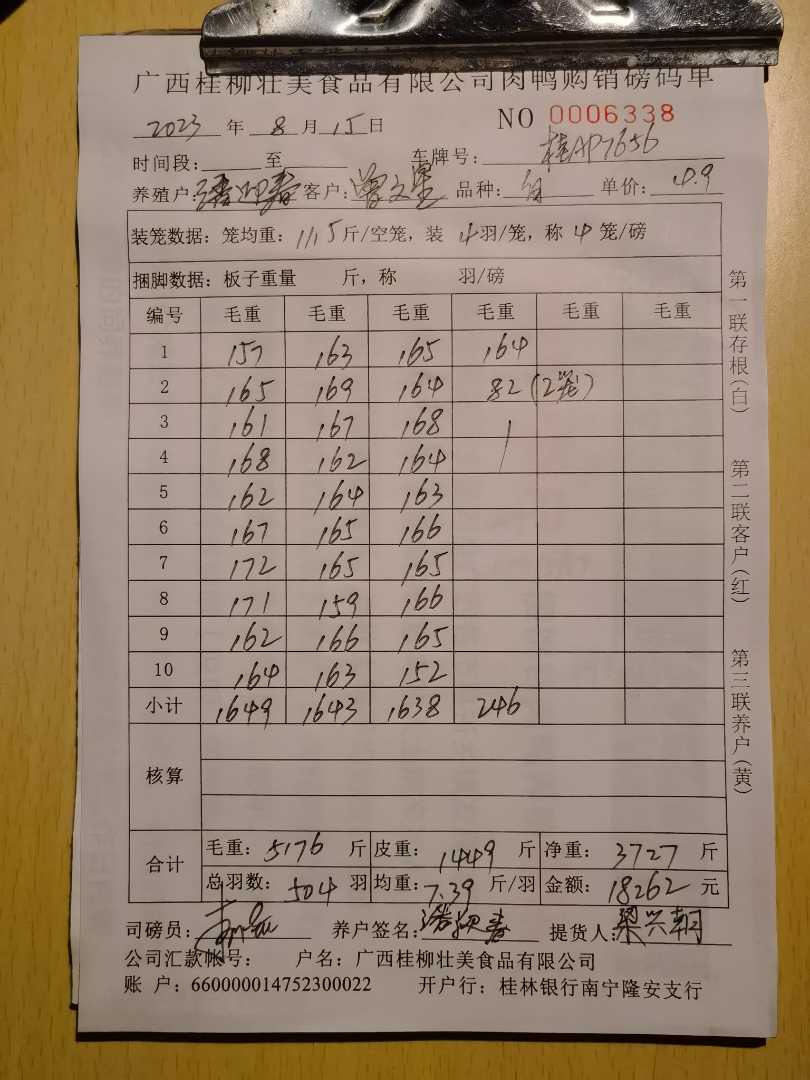 广西桂柳壮美食品有限公司肉鸭购销磅码单
2023 年 8 月 15 日 NO 0006338
时间段: 至 车牌号: 桂AP7656
养殖户: 潘迎春 客户: 曾文星 品种: 单价: 4.9
装笼数据: 笼均重: 11.5 斤/空笼, 装 4 羽/笼, 称 4 笼/磅
捆脚数据: 板子重量 斤, 称 羽/磅
编号 毛重 毛重 毛重 毛重 毛重 毛重
1 157 163 165 164
2 165 169 164 82 (2笼)
3 161 167 168
4 168 162 164
5 162 164 163
6 167 165 166
7 172 165 165
8 171 159 166
9 162 166 165
10 164 163 152
小计 1649 1643 1638 246
核算
合计 毛重: 5176 斤 皮重: 1449 斤 净重: 3727 斤
总羽数: 504 羽 均重: 7.39 斤/羽 金额: 18262 元
司磅员: 养户签名: 潘迎春 提货人: 梁兴朝
公司汇款帐号: 户名: 广西桂柳壮美食品有限公司
账 户: 660000014752300022 开户行: 桂林银行南宁隆安支行
第一联存根(白) 第二联客户(红) 第三联养户(黄)